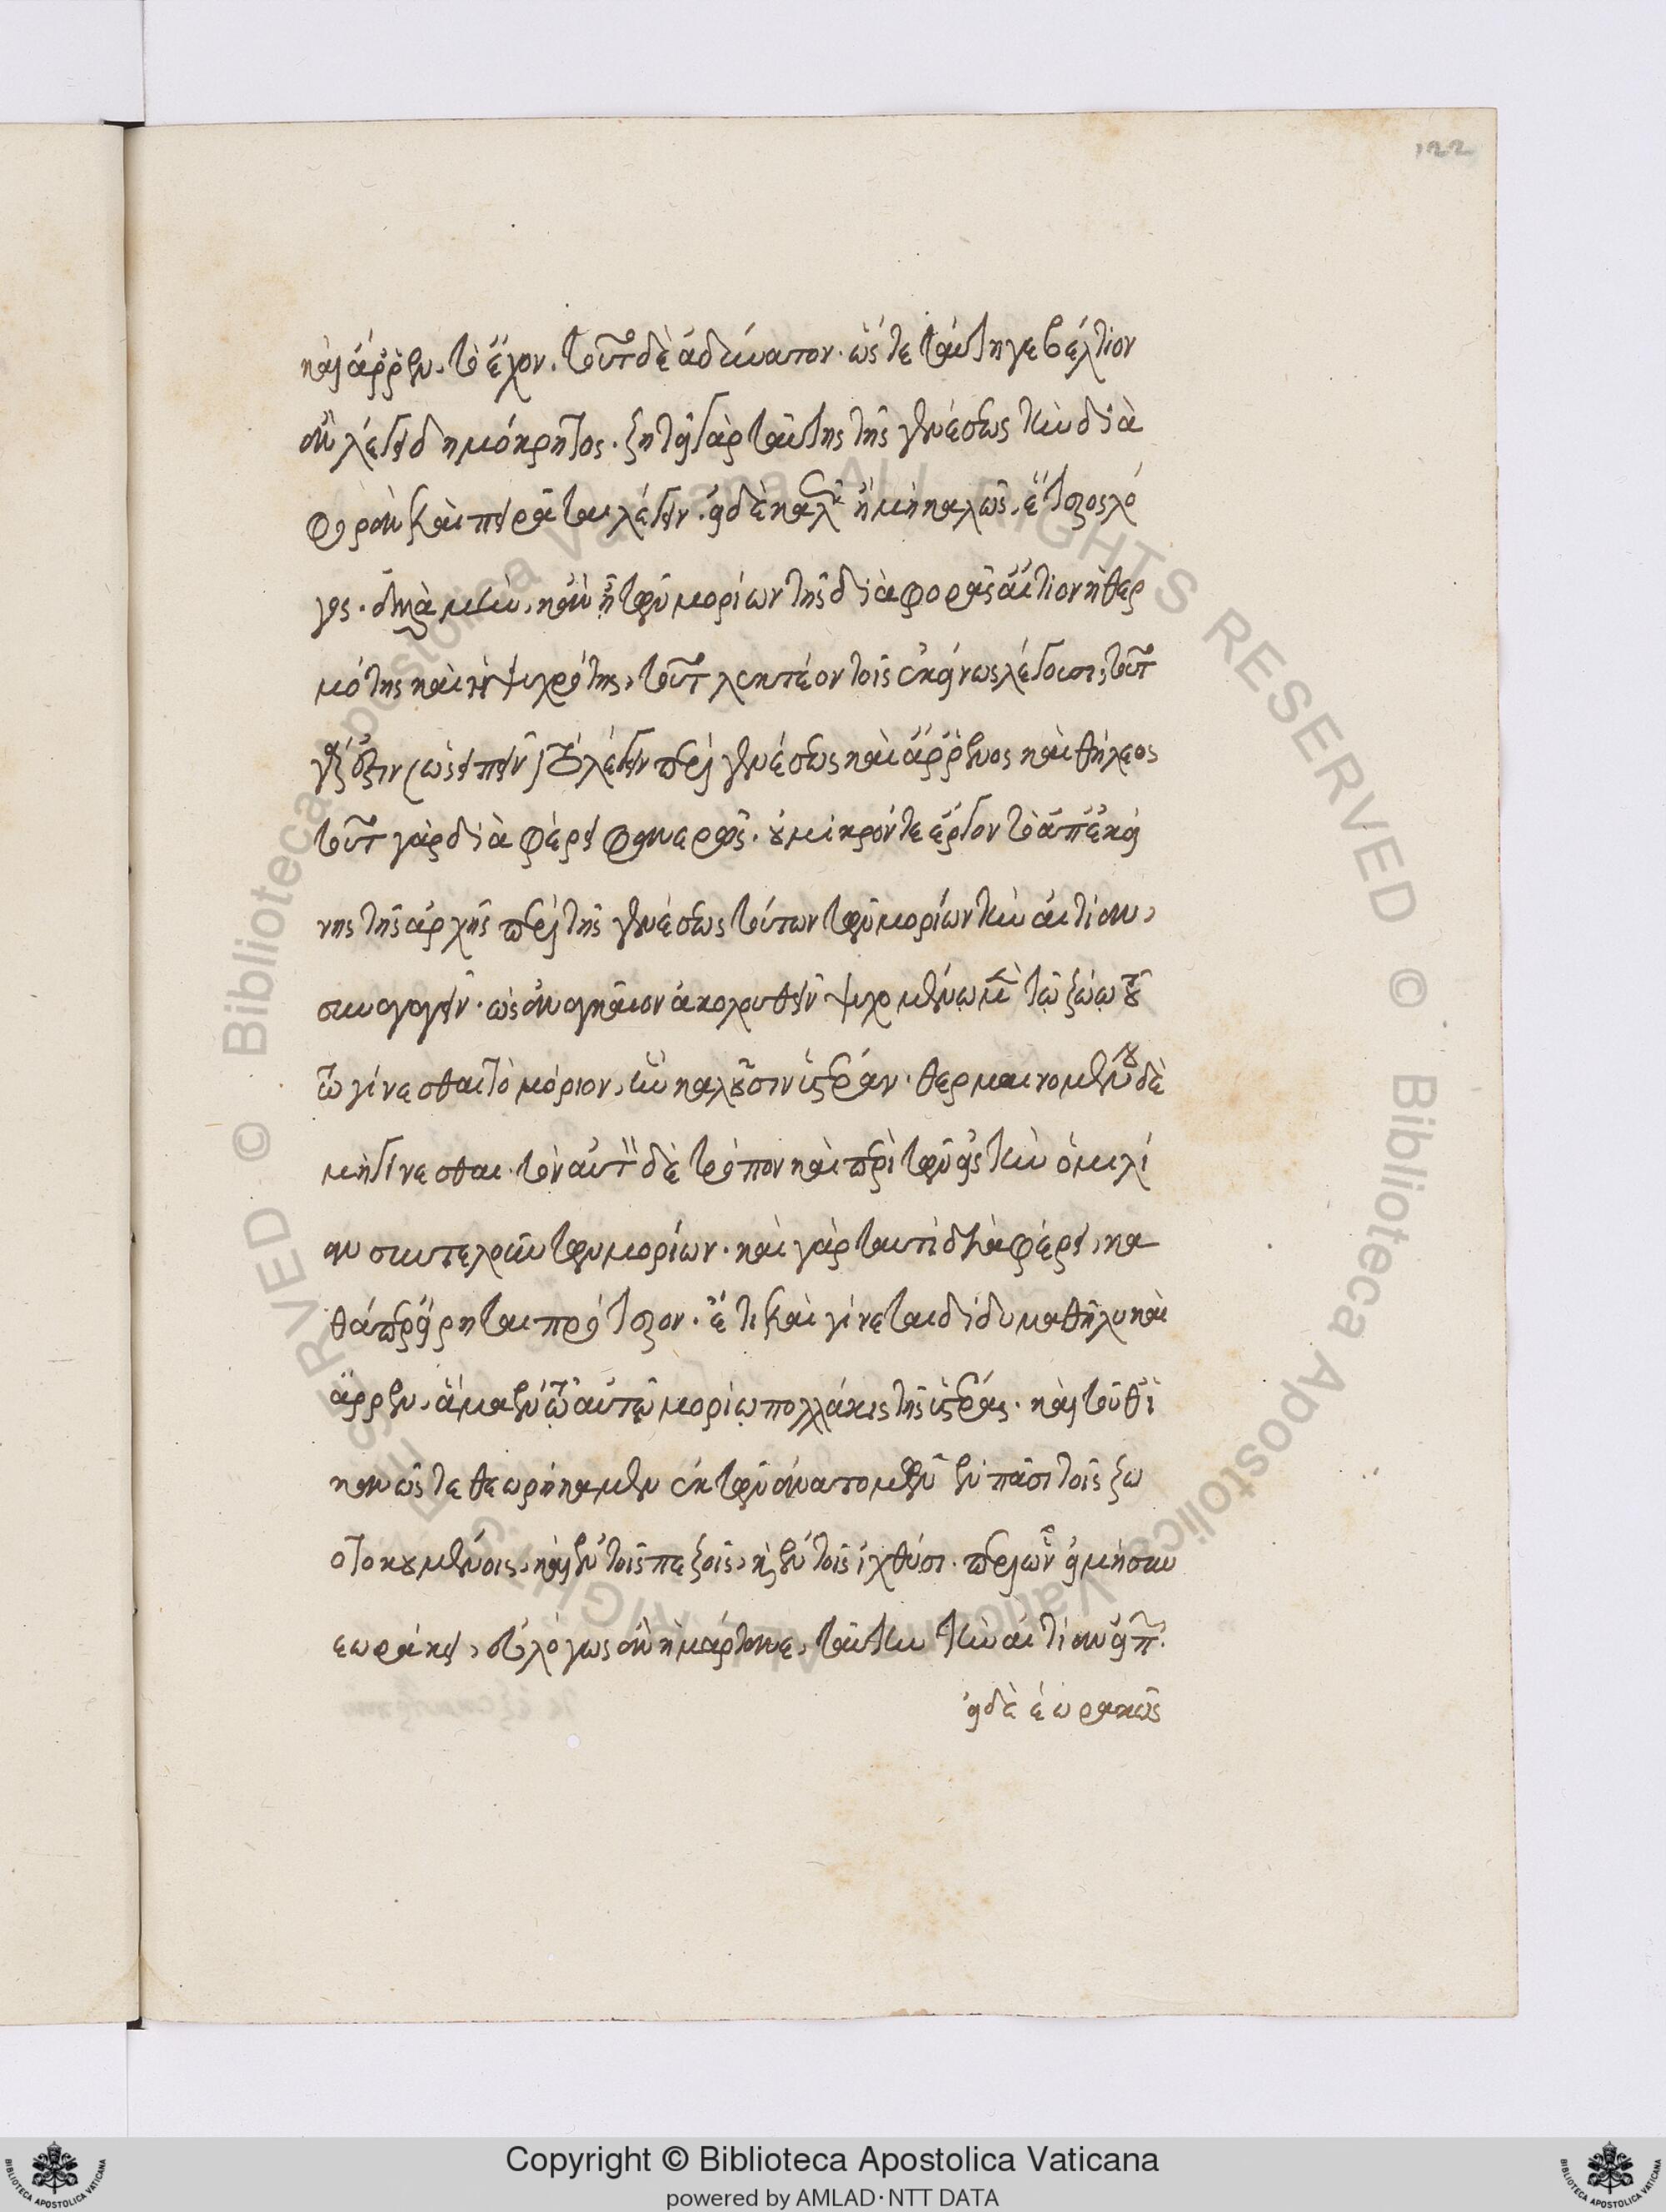 122
καὶ ἄρρεν τὸ ἔχον. τοῦτο δὲ ἀδύνατον. ὥστε ταύτῃ γε βέλτιον
ἂν λέγει δημόκριτος. ζητεῖ γὰρ ταύτης τῆς γενέσεως τὴν δια
φορὰν καὶ πειρᾶται λέγειν. εἰ δὲ καλῶς ἢ μὴ καλῶς, ἕτερος λό
γος. ἀλλὰ μὴν, κἂν ᾖ τῶν μορίων τῆς διαφορᾶς αἴτιον ἡ θερ
μότης καὶ ἡ ψυχρότης, τοῦτο λεκτέον τοῖς ἐκείνως λέγουσι, τοῦτο
γάρ ἐστιν (ὡς εἰπεῖν) τὸ λέγειν περὶ γενέσεως καὶ ἄρρενος καὶ θήλεος
τοῦτο γὰρ διαφέρει φανερῶς. οὐ μικρόν τε ἔργον τὸ ἀπ' ἐκεί
νης τῆς ἀρχῆς περὶ τῆς γενέσεως τούτων τῶν μορίων τὴν αἰτίαν,
συναγαγεῖν. ὡς ἀναγκαῖον ἀκολουθεῖν ψυχομένῳ μὲν τῷ ζώῳ τοῦ
το γίνεσθαι τὸ μόριον, ἣν καλοῦσιν ὑστέραν. θερμαινομένου δὲ
μὴ γίνεσθαι. τὸν αὐτὸν δὲ τρόπον καὶ περὶ τῶν εἰς τὴν ὁμιλί
αν συντελούντων μορίων. καὶ γὰρ ταῦτα διαφέρει, κα
θάπερ εἴρηται πρότερον. ἔτι καὶ γίνεται δίδυμα θῆλυ καὶ
ἄρρεν, ἅμα ἐν τῷ αὐτῷ μορίῳ πολλάκις τῆς ὑστέρας. καὶ τοῦθ' ἱ
κανῶς τεθεωρήκαμεν ἐκ τῶν ἀνατομῶν ἐν πᾶσι τοῖς ζω
οτοκουμένοις, καὶ ἐν τοῖς πεζοῖς, καὶ ἐν τοῖς ἰχθύσι. περὶ ὧν εἰ μὴ συν
εωράκει, εὐλόγως ἂν ἡμάρτανε, ταύτην τὴν αἰτίαν εἰπ.
εἰ δὲ ἑωρακὼς
Copyright © Biblioteca Apostolica Vaticana
powered by AMLAD·NTT DATA